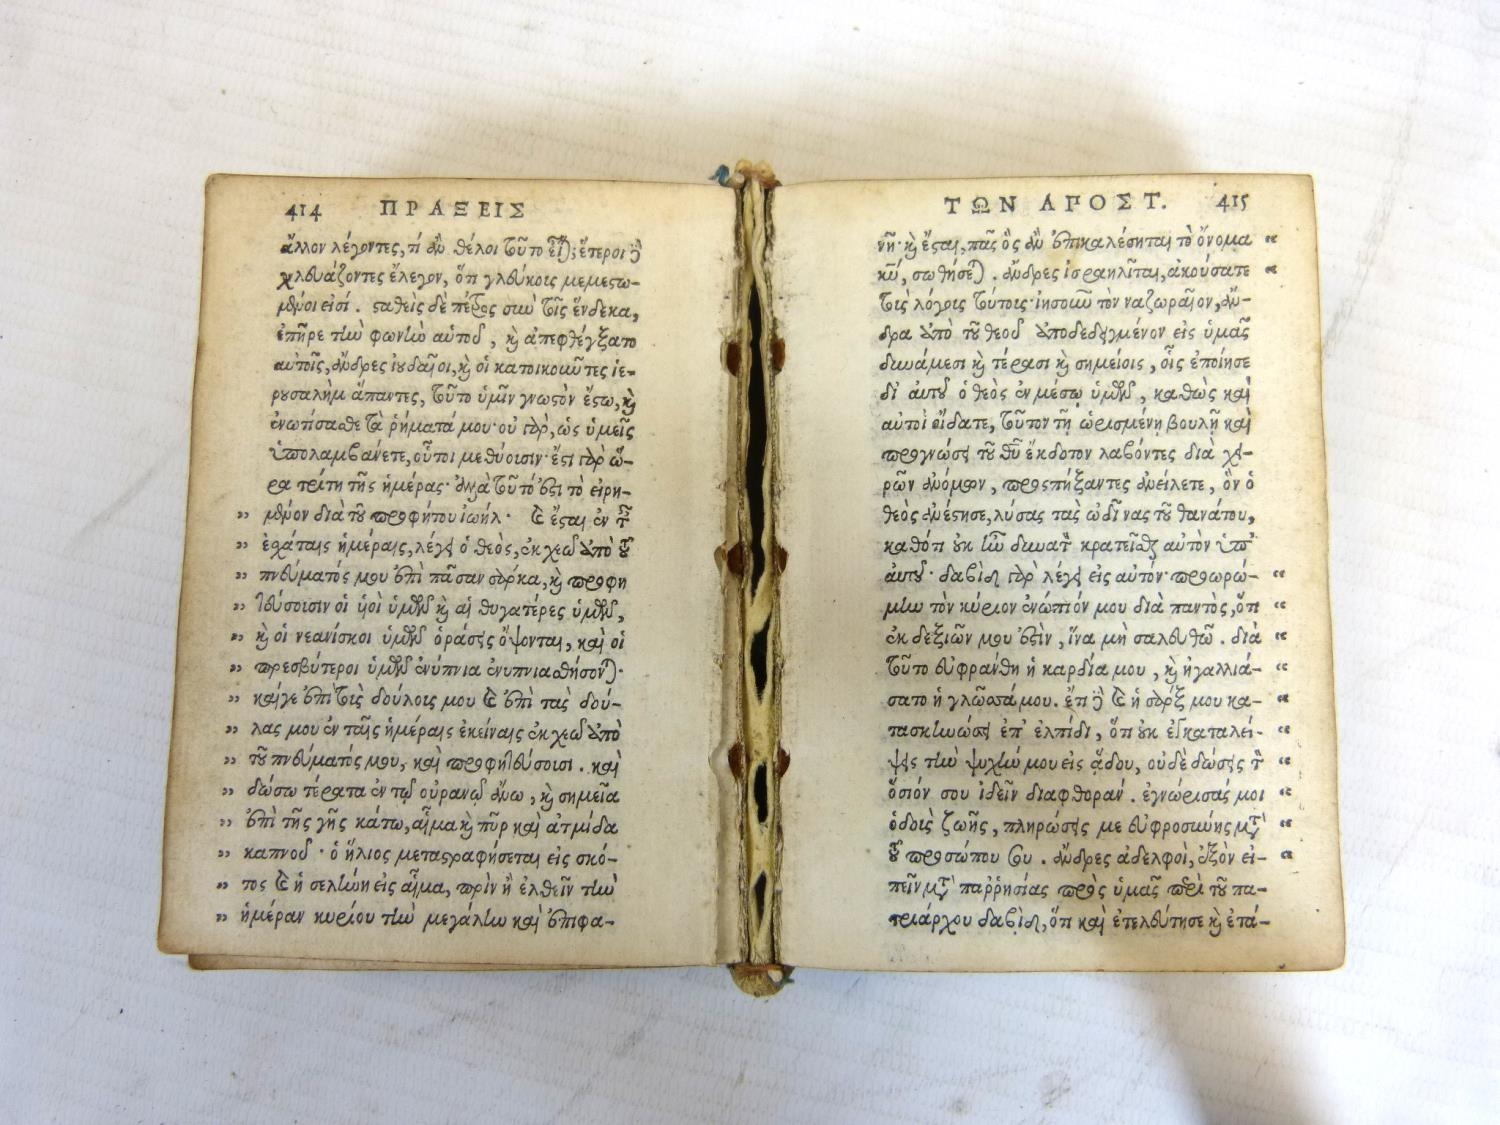 414 ΠΡΑΞΕΙΣ
ἄλλον λέγοντες, τί ἂν θέλοι τοῦτο εἶναι; ἕτεροι δὲ
χλευάζοντες ἔλεγον, ὅτι γλεύκοις μεμεστω-
μένοι εἰσί. σταθεὶς δὲ πέτρος σὺν τοῖς ἕνδεκα,
ἐπῆρε τὴν φωνὴν αὑτοῦ, καὶ ἀπεφθέγξατο
αὐτοῖς, ἄνδρες ἰουδαῖοι, καὶ οἱ κατοικοῦντες ἱε-
ρουσαλὴμ ἅπαντες, τοῦτο ὑμῖν γνωστὸν ἔστω, καὶ
ἐνωτίσασθε τὰ ῥήματά μου· οὐ γὰρ, ὡς ὑμεῖς
ὑπολαμβάνετε, οὗτοι μεθύουσιν· ἔστι γὰρ ὥ-
ρα τρίτη τῆς ἡμέρας· ἀλλὰ τοῦτό ἐστι τὸ εἰρη-
„ μένον διὰ τοῦ προφήτου ἰωήλ· καὶ ἔσται ἐν ταῖς
„ ἐσχάταις ἡμέραις, λέγει ὁ θεὸς, ἐκχεῶ ἀπὸ τοῦ
„ πνεύματός μου ἐπὶ πᾶσαν σάρκα, καὶ προφη
„ τεύσουσιν οἱ υἱοὶ ὑμῶν καὶ αἱ θυγατέρες ὑμῶν,
„ καὶ οἱ νεανίσκοι ὑμῶν ὁράσεις ὄψονται, καὶ οἱ
„ πρεσβύτεροι ὑμῶν ἐνύπνια ἐνυπνιασθήσονται·
„ καίγε ἐπὶ τοὺς δούλους μου καὶ ἐπὶ τὰς δού-
„ λας μου ἐν ταῖς ἡμέραις ἐκείναις ἐκχεῶ ἀπὸ
„ τοῦ πνεύματός μου, καὶ προφητεύσουσι. καὶ
„ δώσω τέρατα ἐν τῷ οὐρανῷ ἄνω, καὶ σημεῖα
„ ἐπὶ τῆς γῆς κάτω, αἷμα καὶ πῦρ καὶ ἀτμίδα
„ καπνοῦ· ὁ ἥλιος μεταστραφήσεται εἰς σκό-
„ τος καὶ ἡ σελήνη εἰς αἷμα, πρὶν ἢ ἐλθεῖν τὴν
„ ἡμέραν κυρίου τὴν μεγάλην καὶ ἐπιφα-
ΤΩΝ ΑΠΟΣΤ. 415
νῆ· καὶ ἔσται, πᾶς ὃς ἂν ἐπικαλέσηται τὸ ὄνομα “
κυ, σωθήσεται. ἄνδρες ἰσραηλῖται, ἀκούσατε “
τοὺς λόγους τούτους· ἰησοῦν τὸν ναζωραῖον, ἄν-
δρα ἀπὸ τοῦ θεοῦ ἀποδεδειγμένον εἰς ὑμᾶς
δυνάμεσι καὶ τέρασι καὶ σημείοις, οἷς ἐποίησε
δι' αὐτοῦ ὁ θεὸς ἐν μέσῳ ὑμῶν, καθὼς καὶ
αὐτοὶ οἴδατε, τοῦτον τῇ ὡρισμένῃ βουλῇ καὶ
προγνώσει τοῦ θυ ἔκδοτον λαβόντες διὰ χει-
ρῶν ἀνόμων, προσπήξαντες ἀνείλετε, ὃν ὁ
θεὸς ἀνέστησε, λύσας τὰς ὠδῖνας τοῦ θανάτου,
καθότι οὐκ ἦν δυνατὸν κρατεῖσθαι αὐτὸν ὑπ'
αὐτοῦ· δαβὶδ γὰρ λέγει εἰς αὐτόν· προωρώ- “
μην τὸν κύριον ἐνώπιόν μου διὰ παντὸς, ὅτι “
ἐκ δεξιῶν μου ἐστὶν, ἵνα μὴ σαλευθῶ. διὰ “
τοῦτο εὐφράνθη ἡ καρδία μου, καὶ ἠγαλλιά- “
σατο ἡ γλῶσσά μου. ἔτι δὲ καὶ ἡ σάρξ μου κα- “
τασκηνώσει ἐπ' ἐλπίδι, ὅτι οὐκ ἐγκαταλεί- “
ψεις τὴν ψυχήν μου εἰς ᾅδου, οὐδὲ δώσεις τὸν “
ὅσιόν σου ἰδεῖν διαφθοράν. ἐγνώρισάς μοι “
ὁδοὺς ζωῆς, πληρώσεις με εὐφροσύνης μετὰ “
τοῦ προσώπου σου. ἄνδρες ἀδελφοὶ, ἐξὸν εἰ- “
πεῖν μετὰ παῤῥησίας πρὸς ὑμᾶς περὶ τοῦ πα-
τριάρχου δαβὶδ, ὅτι καὶ ἐτελεύτησε καὶ ἐτά-